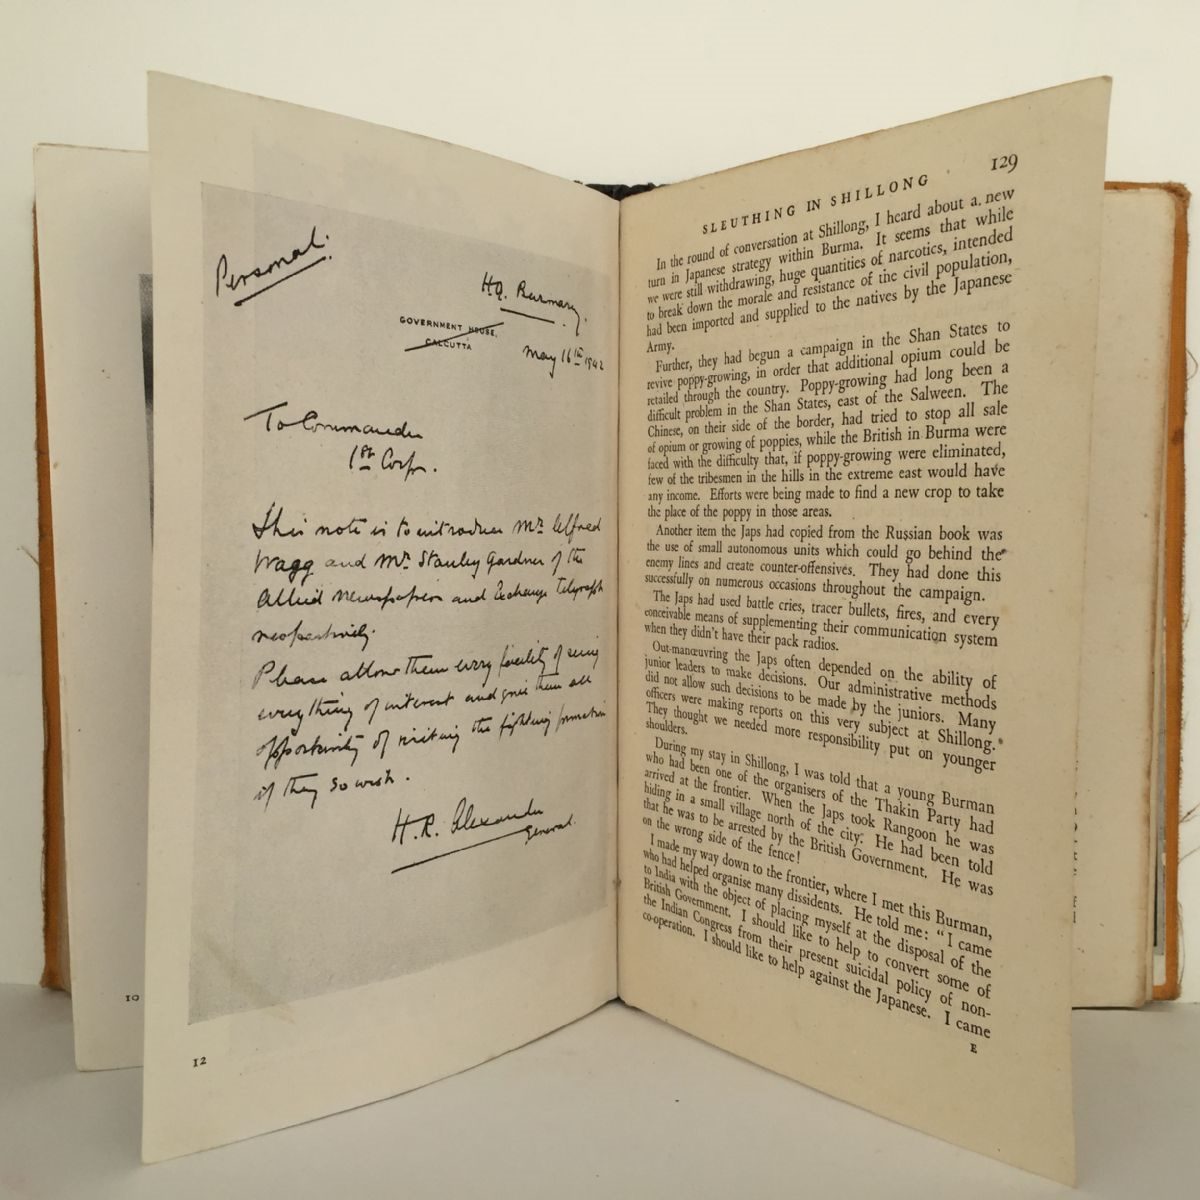 Personal.
H.Q. Burmarmy.
GOVERNMENT HOUSE,
CALCUTTA
May 16th 1942
To Commander
1st Corps.
This note is to introduce Mr. Alfred
Wagg and Mr. Stanley Gardner of the
Allied newspapers and Exchange Telegraph
respectively.
Please allow them every facility of seeing
everything of interest and give them all
opportunity of visiting the fighting formations
if they so wish.
H. R. Alexander
General.
12
10
129
SLEUTHING IN SHILLONG
In the round of conversation at Shillong, I heard about a new
turn in Japanese strategy within Burma. It seems that while
we were still withdrawing, huge quantities of narcotics, intended
to break down the morale and resistance of the civil population,
had been imported and supplied to the natives by the Japanese
Army.
Further, they had begun a campaign in the Shan States to
revive poppy-growing, in order that additional opium could be
retailed through the country. Poppy-growing had long been a
difficult problem in the Shan States, east of the Salween. The
Chinese, on their side of the border, had tried to stop all sale
of opium or growing of poppies, while the British in Burma were
faced with the difficulty that, if poppy-growing were eliminated,
few of the tribesmen in the hills in the extreme east would have
any income. Efforts were being made to find a new crop to take
the place of the poppy in those areas.
Another item the Japs had copied from the Russian book was
the use of small autonomous units which could go behind the
enemy lines and create counter-offensives. They had done this
successfully on numerous occasions throughout the campaign.
The Japs had used battle cries, tracer bullets, fires, and every
conceivable means of supplementing their communication system
when they didn't have their pack radios.
Out-manœuvring the Japs often depended on the ability of
junior leaders to make decisions. Our administrative methods
did not allow such decisions to be made by the juniors. Many
officers were making reports on this very subject at Shillong.
They thought we needed more responsibility put on younger
shoulders.
During my stay in Shillong, I was told that a young Burman
who had been one of the organisers of the Thakin Party had
arrived at the frontier. When the Japs took Rangoon he was
hiding in a small village north of the city. He had been told
that he was to be arrested by the British Government. He was
on the wrong side of the fence!
I made my way down to the frontier, where I met this Burman,
who had helped organise many dissidents. He told me: "I came
to India with the object of placing myself at the disposal of the
British Government. I should like to help to convert some of
the Indian Congress from their present suicidal policy of non-
co-operation. I should like to help against the Japanese. I came
E